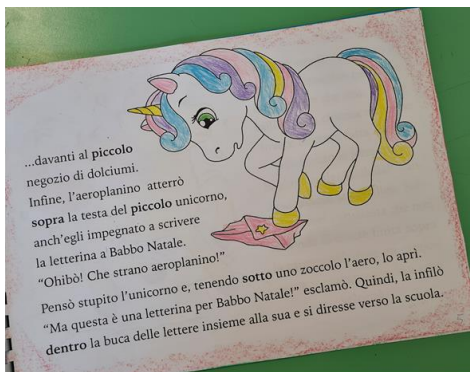 ...davanti al piccolo
negozio di dolciumi.
Infine, l'aeroplanino atterrò
sopra la testa del piccolo unicorno,
anch'egli impegnato a scrivere
la letterina a Babbo Natale.
"Ohibò! Che strano aeroplanino!"
Pensò stupito l'unicorno e, tenendo sotto uno zoccolo l'aereo, lo aprì.
"Ma questa è una letterina per Babbo Natale!" esclamò. Quindi, la infilò
dentro la buca delle lettere insieme alla sua e si diresse verso la scuola.